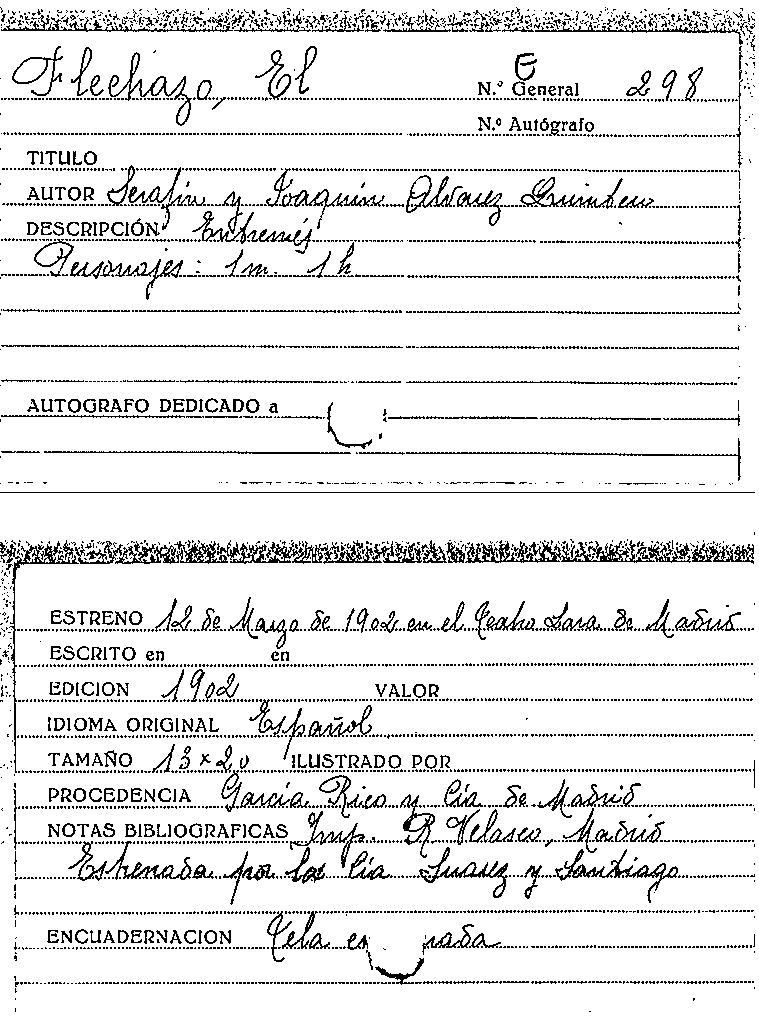 Flechazo, El
E
N.º General 298
N.º Autógrafo
TITULO
AUTOR Serafin y Joaquin Alvarez Quintero
DESCRIPCIÓN Entremés
Personajes: 1 m. 1 h
AUTOGRAFO DEDICADO a
ESTRENO 12 de Marzo de 1902 en el Teatro Lara de Madrid
ESCRITO en en
EDICION 1902 VALOR
IDIOMA ORIGINAL Español
TAMAÑO 13 x 20 ILUSTRADO POR
PROCEDENCIA García Rico y Cía de Madrid
NOTAS BIBLIOGRAFICAS Imp. R Velasco, Madrid
Estrenada por la Cía Suarez y Santiago
ENCUADERNACION Tela